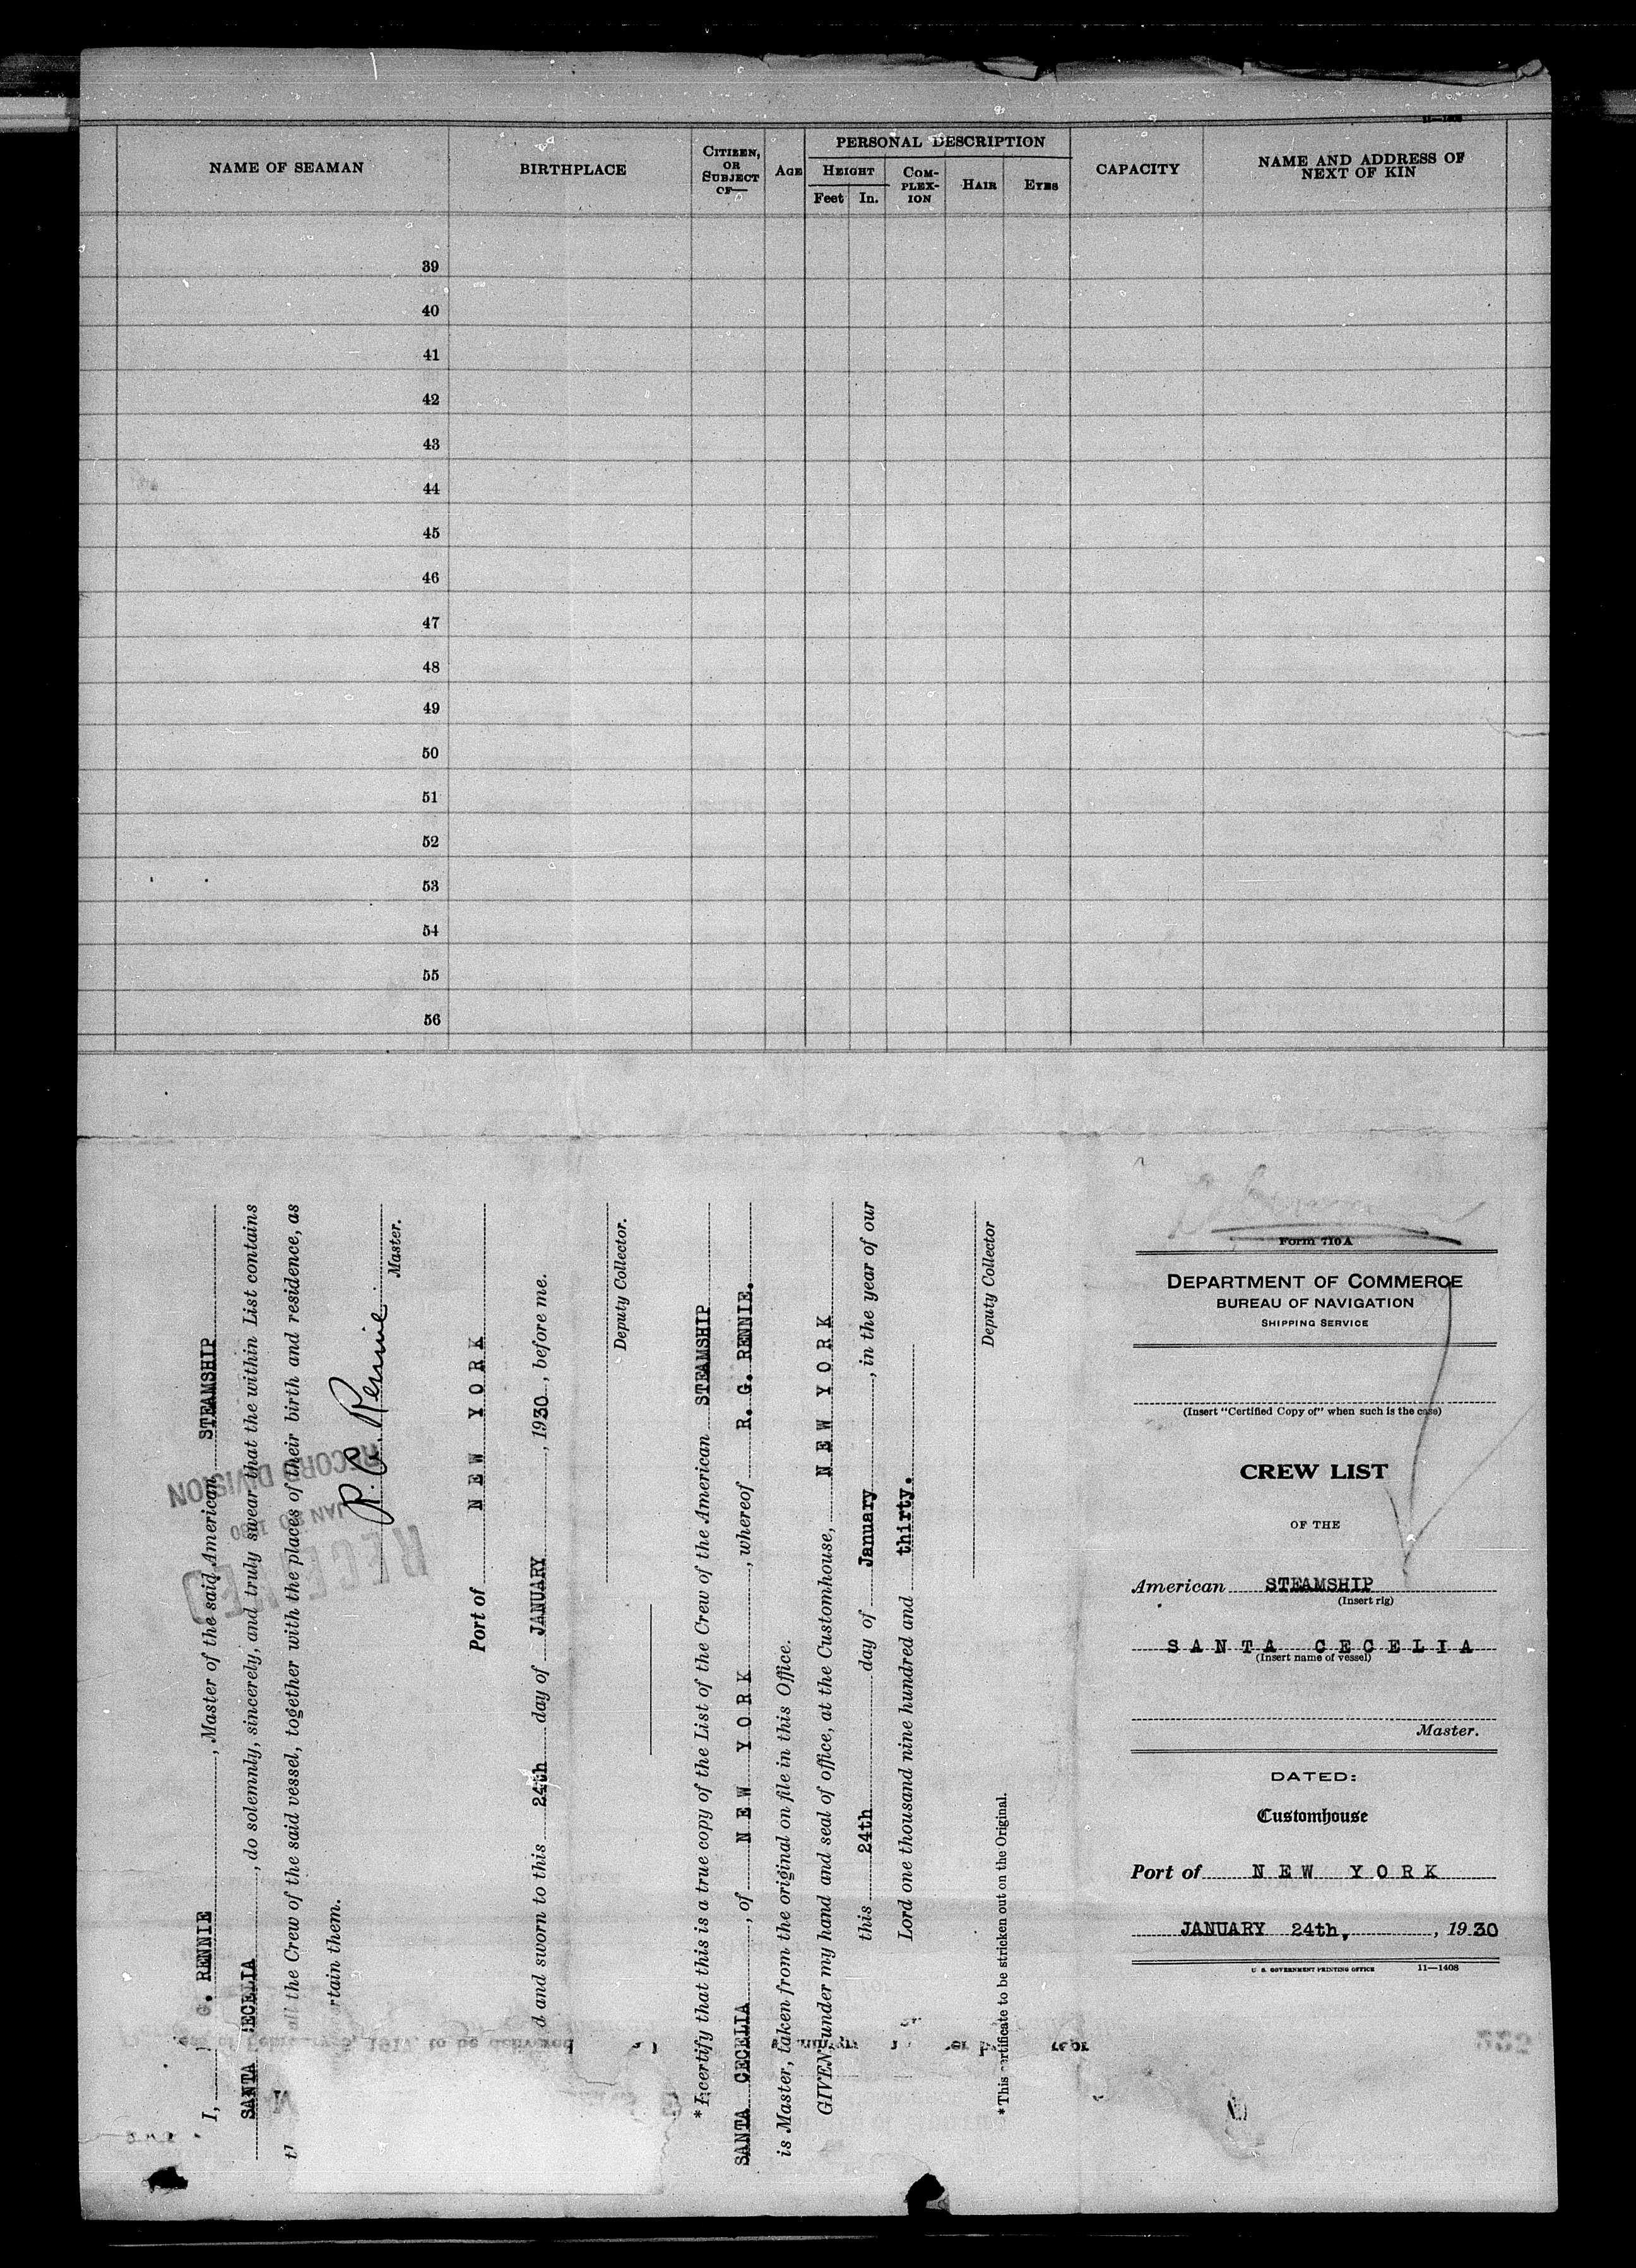 11—1408
NAME OF SEAMAN
BIRTHPLACE
CITIZEN,
OR
SUBJECT
OF—
AGE
PERSONAL DESCRIPTION
HEIGHT
Feet In.
COM-
PLEX-
ION
HAIR
EYES
CAPACITY
NAME AND ADDRESS OF
NEXT OF KIN
39
40
41
42
43
44
45
46
47
48
49
50
51
52
53
54
55
56
I, G. RENNIE, Master of the said American STEAMSHIP
SANTA ECELIA, do solemnly, sincerely, and truly swear that the within List contains
all the Crew of the said vessel, together with the places of their birth and residence, as
rtain them.
R. G. Rennie
Master.
RECEIVED
JAN 1930
RECORD DIVISION
Port of NEW YORK
d and sworn to this 24th day of JANUARY, 1930, before me.
Deputy Collector.
*I certify that this is a true copy of the List of the Crew of the American STEAMSHIP
SANTA CECELIA, of NEW YORK, whereof R. G. RENNIE.
is Master, taken from the original on file in this Office.
GIVEN under my hand and seal of office, at the Customhouse, NEW YORK
this 24th day of January, in the year of our
Lord one thousand nine hundred and thirty.
Deputy Collector
*This certificate to be stricken out on the Original.
Form 710A
DEPARTMENT OF COMMERCE
BUREAU OF NAVIGATION
SHIPPING SERVICE
(Insert "Certified Copy of" when such is the case)
CREW LIST
OF THE
American STEAMSHIP
(Insert rig)
SANTA CECELIA
(Insert name of vessel)
Master.
DATED:
Customhouse
Port of NEW YORK
JANUARY 24th, , 1930
U. S. GOVERNMENT PRINTING OFFICE 11—1408